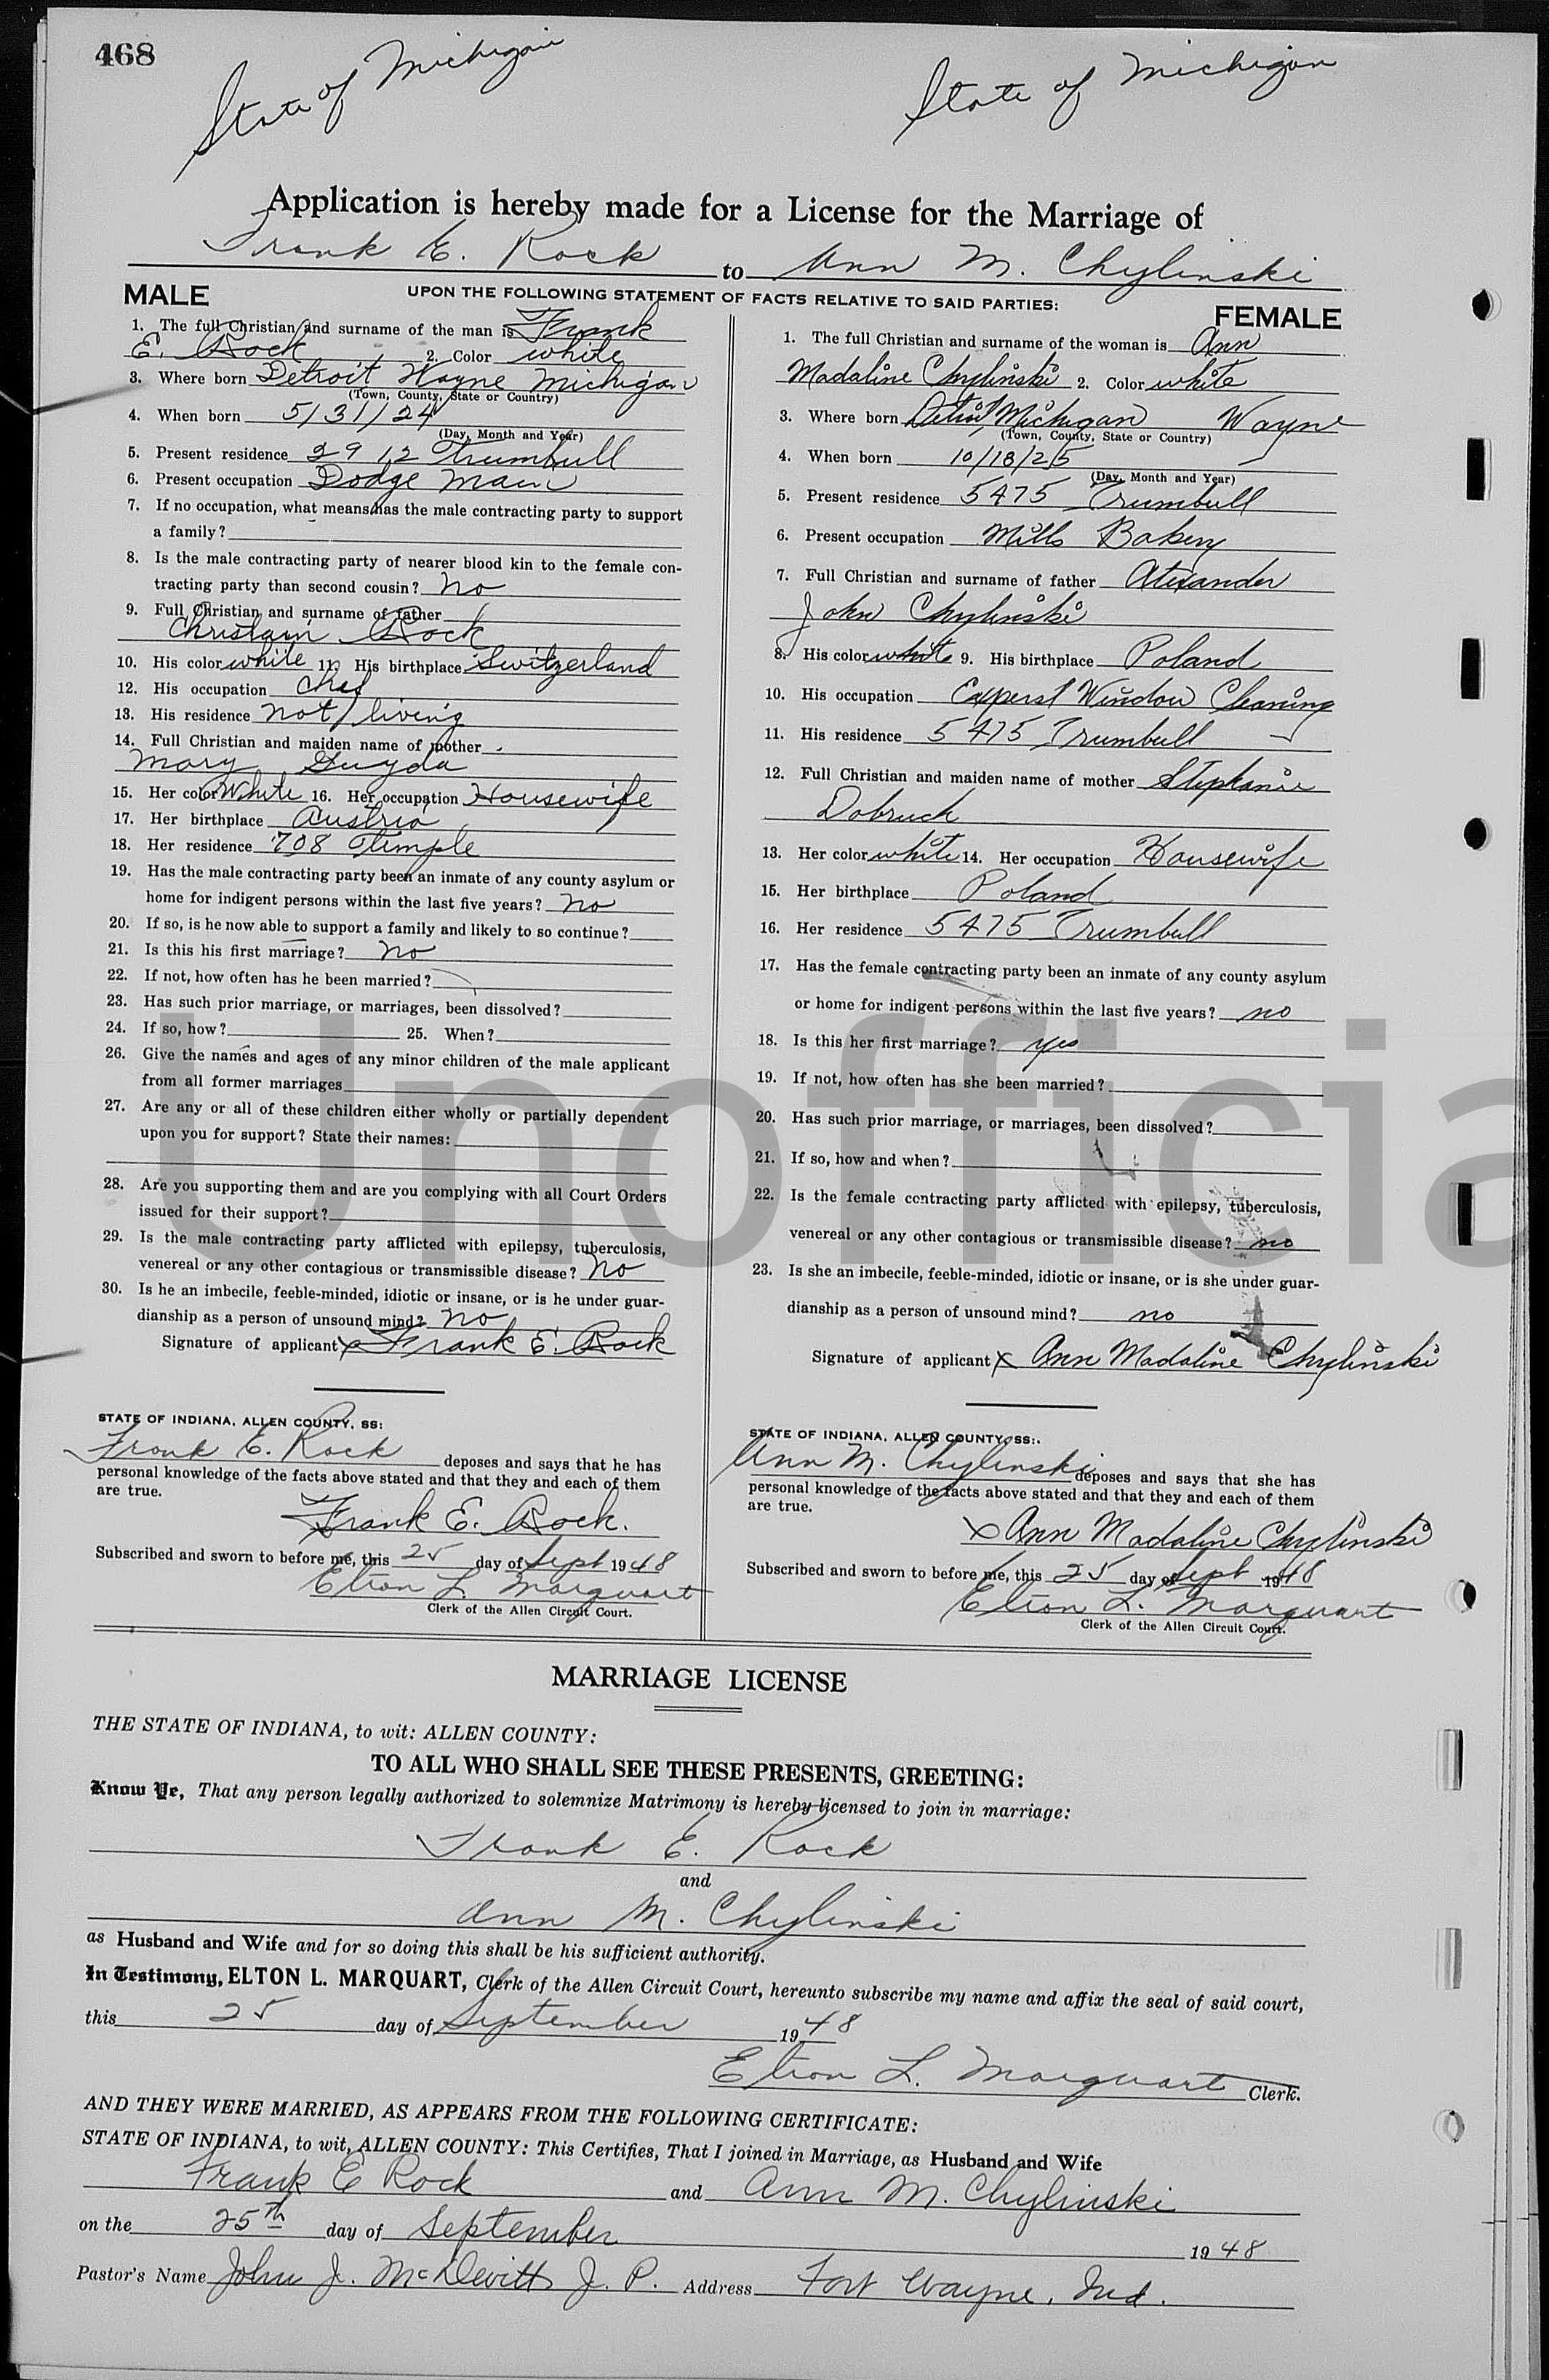 468
State of Michigan
State of Michigan
Application is hereby made for a License for the Marriage of
Frank E. Rock to Ann M. Chylinski
UPON THE FOLLOWING STATEMENT OF FACTS RELATIVE TO SAID PARTIES:
MALE
1. The full Christian and surname of the man is Frank
E. Rock 2. Color white
3. Where born Detroit Wayne Michigan
(Town, County, State or Country)
4. When born 5/31/24
(Day, Month and Year)
5. Present residence 2912 Trumbull
6. Present occupation Dodge Main
7. If no occupation, what means has the male contracting party to support
a family?
8. Is the male contracting party of nearer blood kin to the female con-
tracting party than second cousin? no
9. Full Christian and surname of father
Christain Rock
10. His color white 11. His birthplace Switzerland
12. His occupation Chef
13. His residence not living
14. Full Christian and maiden name of mother
Mary Guyda
15. Her color White 16. Her occupation Housewife
17. Her birthplace Austria
18. Her residence 708 Temple
19. Has the male contracting party been an inmate of any county asylum or
home for indigent persons within the last five years? no
20. If so, is he now able to support a family and likely to so continue?
21. Is this his first marriage? no
22. If not, how often has he been married?
23. Has such prior marriage, or marriages, been dissolved?
24. If so, how? 25. When?
26. Give the names and ages of any minor children of the male applicant
from all former marriages
27. Are any or all of these children either wholly or partially dependent
upon you for support? State their names:
28. Are you supporting them and are you complying with all Court Orders
issued for their support?
29. Is the male contracting party afflicted with epilepsy, tuberculosis,
venereal or any other contagious or transmissible disease? no
30. Is he an imbecile, feeble-minded, idiotic or insane, or is he under guar-
dianship as a person of unsound mind? no
Signature of applicant x Frank E. Rock
STATE OF INDIANA, ALLEN COUNTY, SS:
Frank E. Rock deposes and says that he has
personal knowledge of the facts above stated and that they and each of them
are true.
Frank E. Rock.
Subscribed and sworn to before me, this 25 day of Sept 1948
Elton L. Marquart
Clerk of the Allen Circuit Court.
FEMALE
1. The full Christian and surname of the woman is Ann
Madaline Chylinski 2. Color white
3. Where born Detroit Michigan Wayne
(Town, County, State or Country)
4. When born 10/18/25
(Day, Month and Year)
5. Present residence 5475 Trumbull
6. Present occupation Mills Bakery
7. Full Christian and surname of father Alexander
John Chylinski
8. His color white 9. His birthplace Poland
10. His occupation Experst Window Cleaning
11. His residence 5475 Trumbull
12. Full Christian and maiden name of mother Stephanie
Dobruck
13. Her color white 14. Her occupation Housewife
15. Her birthplace Poland
16. Her residence 5475 Trumbull
17. Has the female contracting party been an inmate of any county asylum
or home for indigent persons within the last five years? no
18. Is this her first marriage? yes
19. If not, how often has she been married?
20. Has such prior marriage, or marriages, been dissolved?
21. If so, how and when?
22. Is the female contracting party afflicted with epilepsy, tuberculosis,
venereal or any other contagious or transmissible disease? no
23. Is she an imbecile, feeble-minded, idiotic or insane, or is she under guar-
dianship as a person of unsound mind? no
Signature of applicant x Ann Madaline Chylinski
STATE OF INDIANA, ALLEN COUNTY, SS:.
Ann M. Chylinski deposes and says that she has
personal knowledge of the facts above stated and that they and each of them
are true.
x Ann Madaline Chylinski
Subscribed and sworn to before me, this 25 day of Sept 1948
Elton L. Marquart
Clerk of the Allen Circuit Court.
Unofficia
MARRIAGE LICENSE
THE STATE OF INDIANA, to wit: ALLEN COUNTY:
TO ALL WHO SHALL SEE THESE PRESENTS, GREETING:
Know Ye, That any person legally authorized to solemnize Matrimony is hereby licensed to join in marriage:
Frank E. Rock
and
Ann M. Chylinski
as Husband and Wife and for so doing this shall be his sufficient authority.
In Testimony, ELTON L. MARQUART, Clerk of the Allen Circuit Court, hereunto subscribe my name and affix the seal of said court,
this 25 day of September 1948
Elton L. Marquart Clerk.
AND THEY WERE MARRIED, AS APPEARS FROM THE FOLLOWING CERTIFICATE:
STATE OF INDIANA, to wit, ALLEN COUNTY: This Certifies, That I joined in Marriage, as Husband and Wife
Frank E Rock and Ann M. Chylinski
on the 25th day of September 1948
Pastor's Name John J. McDevitt J. P. Address Fort Wayne, Ind.